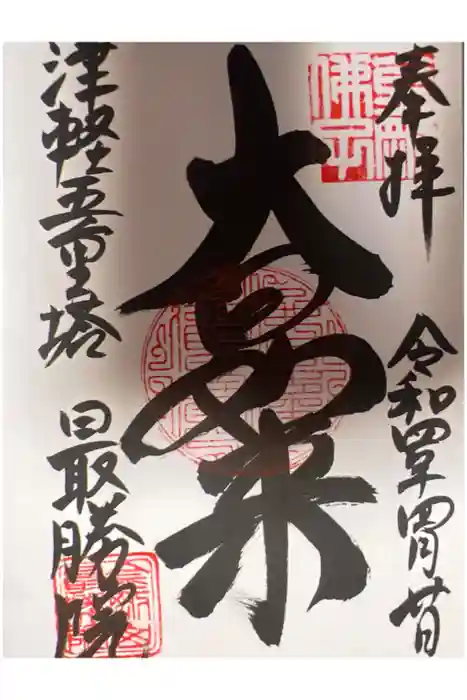 奉拝
令和四年四月
大日如来
津軽五重塔
最勝院